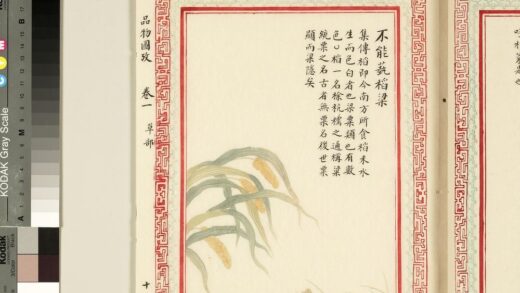 不能蓺稻粱
集傳稻即今南方所食稻米水
生而色白者也粱粟類也有數
色○稻一名稌秔稬之通稱粱
統粟之名古者無粟名後世粟
顯而粱隱矣
品物圖攷 卷一 草部
十
KODAK Gray Scale
Kodak
A
M